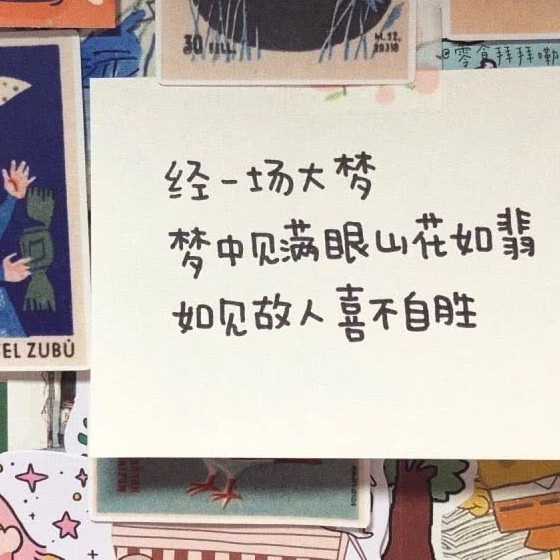 30 FILL.
@零食拜拜嘞
经一场大梦
梦中见满眼山花如翡
如见故人喜不自胜
EL ZUBŮ